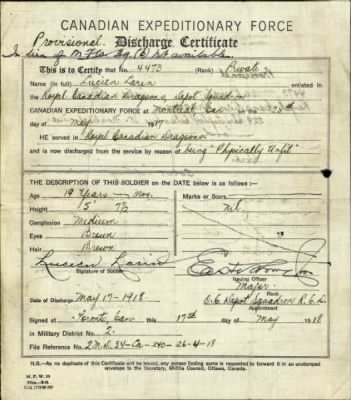 CANADIAN EXPEDITIONARY FORCE
Provisional Discharge Certificate
In lieu of M.F.W. 39 (b) not available.
This is to Certify that No. 4473 (Rank) Private
Name (in full) Lucien Larin enlisted in the
Royal Canadian Dragoons Depot Squadron
CANADIAN EXPEDITIONARY FORCE at Montreal Can
May 1917
HE served in Royal Canadian Dragoons
and is now discharged from the service by reason of being "Physically Unfit"
THE DESCRIPTION OF THIS SOLDIER on the DATE below is as follows:—
Age 19 Years — Mos.
Height 5' 7½
Complexion Medium
Eyes Brown
Hair Brown
Marks or Scars
nil.
Lucien Larin
Signature of Soldier
Issuing Officer
Major
Rank
Date of Discharge May 17-1918
O.C. Depot Squadron R.C.D.
Appointment
Signed at Toronto, Can this 17th day of May 1918
in Military District No. 2.
File Reference No. 2 M.D. 34-La-240-26-4-18
N.B. As no duplicate of this Certificate will be issued, any person finding same is requested to forward it in an unstamped
envelope to the Secretary, Militia Council, Ottawa, Canada.